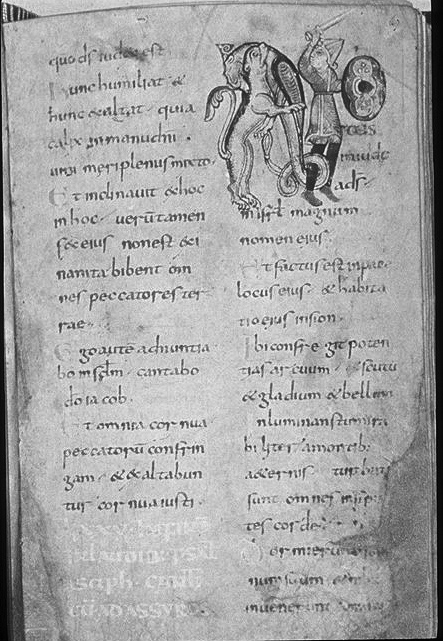 quo ds iudex est
hunc humiliat &
hunc exaltat quia
calix in manu dni
uini meri plenus mixto
Et inclinauit ex hoc
in hoc uerutamen
fex eius non est exi
nanita bibent om
nes peccatores ter
rae
Ego aute adnuntia
bo in sclm cantabo
do iacob
Et omnia cornua
peccatoru confrin
gam & exaltabun
tur cornua iusti
IN LAUDIB PSAL
ASAPH
AD ASSYRIOS
N OTUS
IN IUDE
A DS
in isrl magnum
nomen eius
Et factus est in pace
locus eius & habita
tio eius in sion
Ibi confregit poten
tias arcuum scutu
& gladium & bellum
Inluminans tu mira
biliter a montib;
aeternis turbati
sunt omnes insipi
tes corde
Dormierunt
suum &
inuenerunt